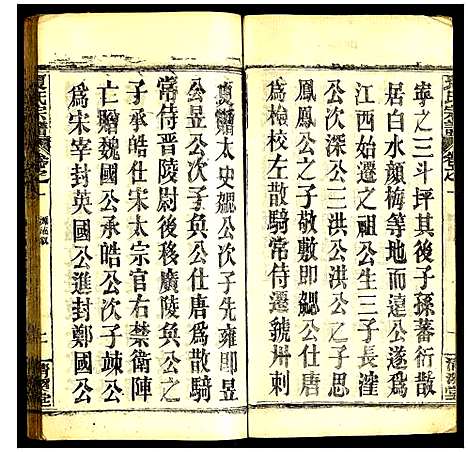 夏氏宗譜
卷之一
寧之三斗坪其後子孫蕃衍散
居白水顏梅等地而遠公遂爲
江西始遷之祖公生二長滢
公次深公三洪公洪公之子思
鳳鳳公之子敬敷即勰公
爲檢校左散常侍遷虢州刺
一
清源堂
史勰公次子先雍即昱
公昱公次子奐公仕唐爲散騎
常侍晋陵尉後移廣陵奐公之
子承皓仕宋太宗官右禁衛陣
亡贈魏國公承皓公次子竦公
爲宋宰封英國公進封鄭國公
夏氏宗譜
卷之一
清源堂